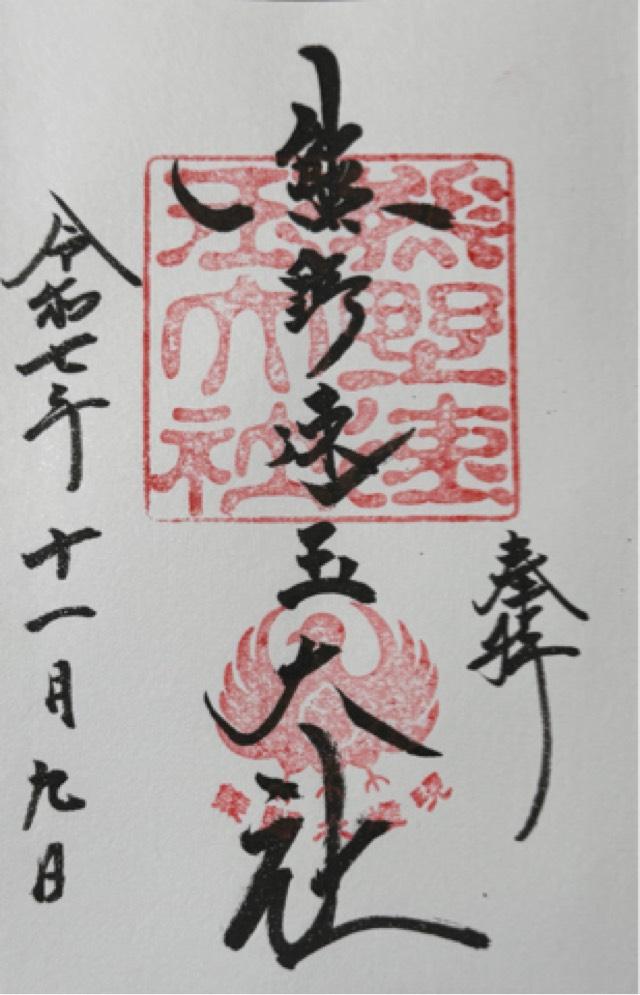 奉拝
熊野速玉大社
令和七年十一月九日
熊野速
玉大社